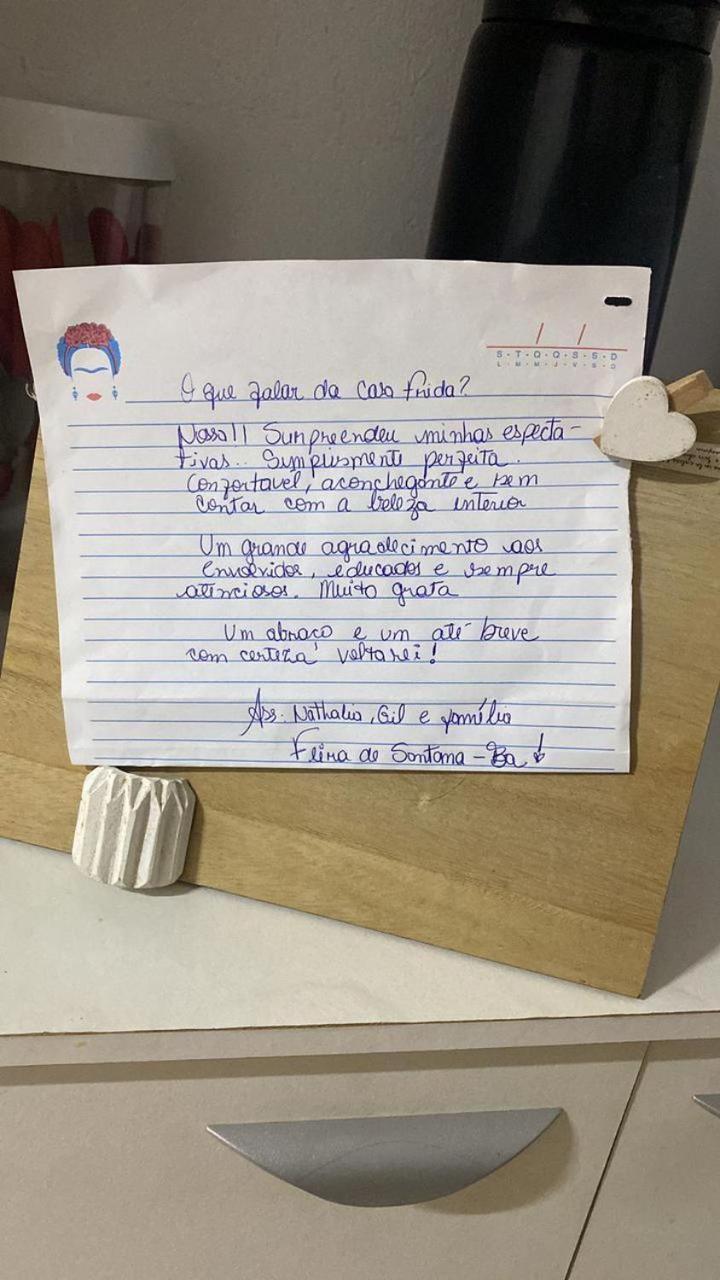 S · T · Q · Q · S · S · D
L · M · M · J · V · S · D
O que falar da Casa Frida?
Nossa!! Surpreendeu minhas especta-
tivas.. Simplismente perfeita.
Confortavel, aconchegante e sem
contar com a beleza interior
Um grande agradecimento aos
envolvidos, educados e sempre
atenciosos. Muito grata
Um abraço e um até breve
com certeza voltarei!
Ass: Nathalia, Gil e família
Feira de Santana - Ba